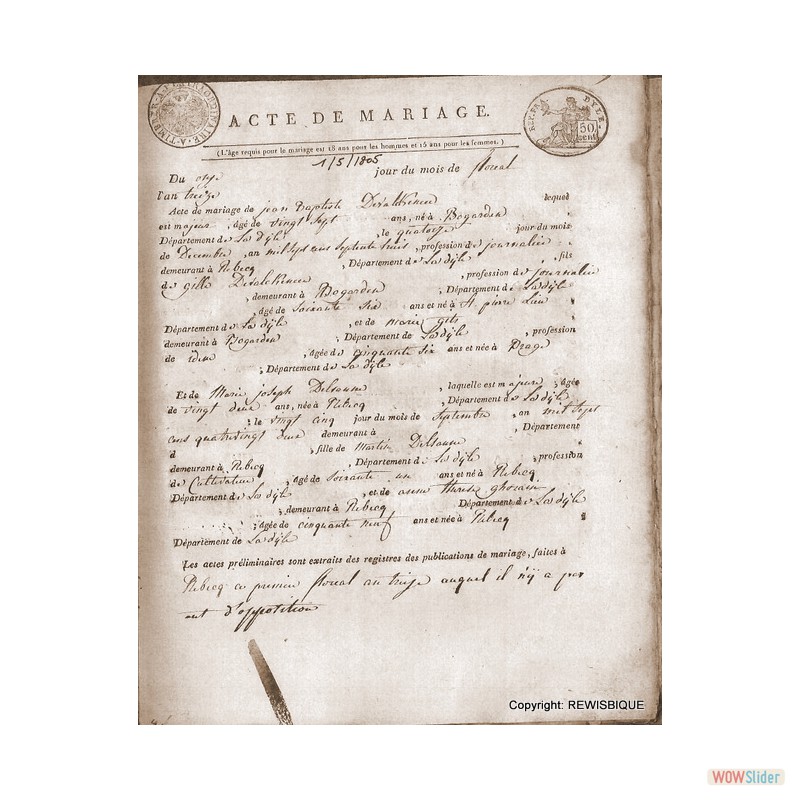 TIMBRE EXTRAORDINAIRE
REP. FRA. DYLE.
50 cent
ACTE DE MARIAGE.
(L'âge requis pour le mariage est 18 ans pour les hommes et 15 ans pour les femmes.)
1/5/1805
Du onze jour du mois de floreal
l'an treize
Acte de mariage de jean Baptiste lequel
est majeur, âgé de vingt sept ans, né à Bogarden
Département de La dÿle, le quatorze jour du mois
de Decembre, an mil sept cens septante huit, profession de journalier
demeurant à Rebecq, Département de La dÿle, fils
de gille, profession de journalier
, demeurant à Bogarden, Département de La dÿle
, âgé de soixante six ans et né à St pierre Lieu
Département de La dÿle, et de marie
demeurant à Bogarden, Département de La dÿle, profession
de idem, âgée de cinquante six ans et née à Brages
, Département de La dÿle
Et de Marie joseph Delsaune, laquelle est majeure, âgée
de vingt deux ans, née à Rebecq, Département de La dÿle
, le vingt cinq jour du mois de Septembre, an mil sept
cens quatrevingt deux demeurant à Département
d, fille de Martin Delsaune
demeurant à Rebecq, Département de La dÿle, profession
de Cultivateur, âgé de soixante un ans et né à Rebecq
Département de La dÿle, et de therese
, demeurant à Rebecq Département de La dÿle
, âgée de cinquante neuf ans et née à Rebecq
Département de La dÿle
Les actes préliminaires sont extraits des registres des publications de mariage, faites à
Rebecq ce premier floreal an treize auquel il n'ÿ a pas
eut d'oppotition
Copyright: REWISBIQUE
WOWSlider